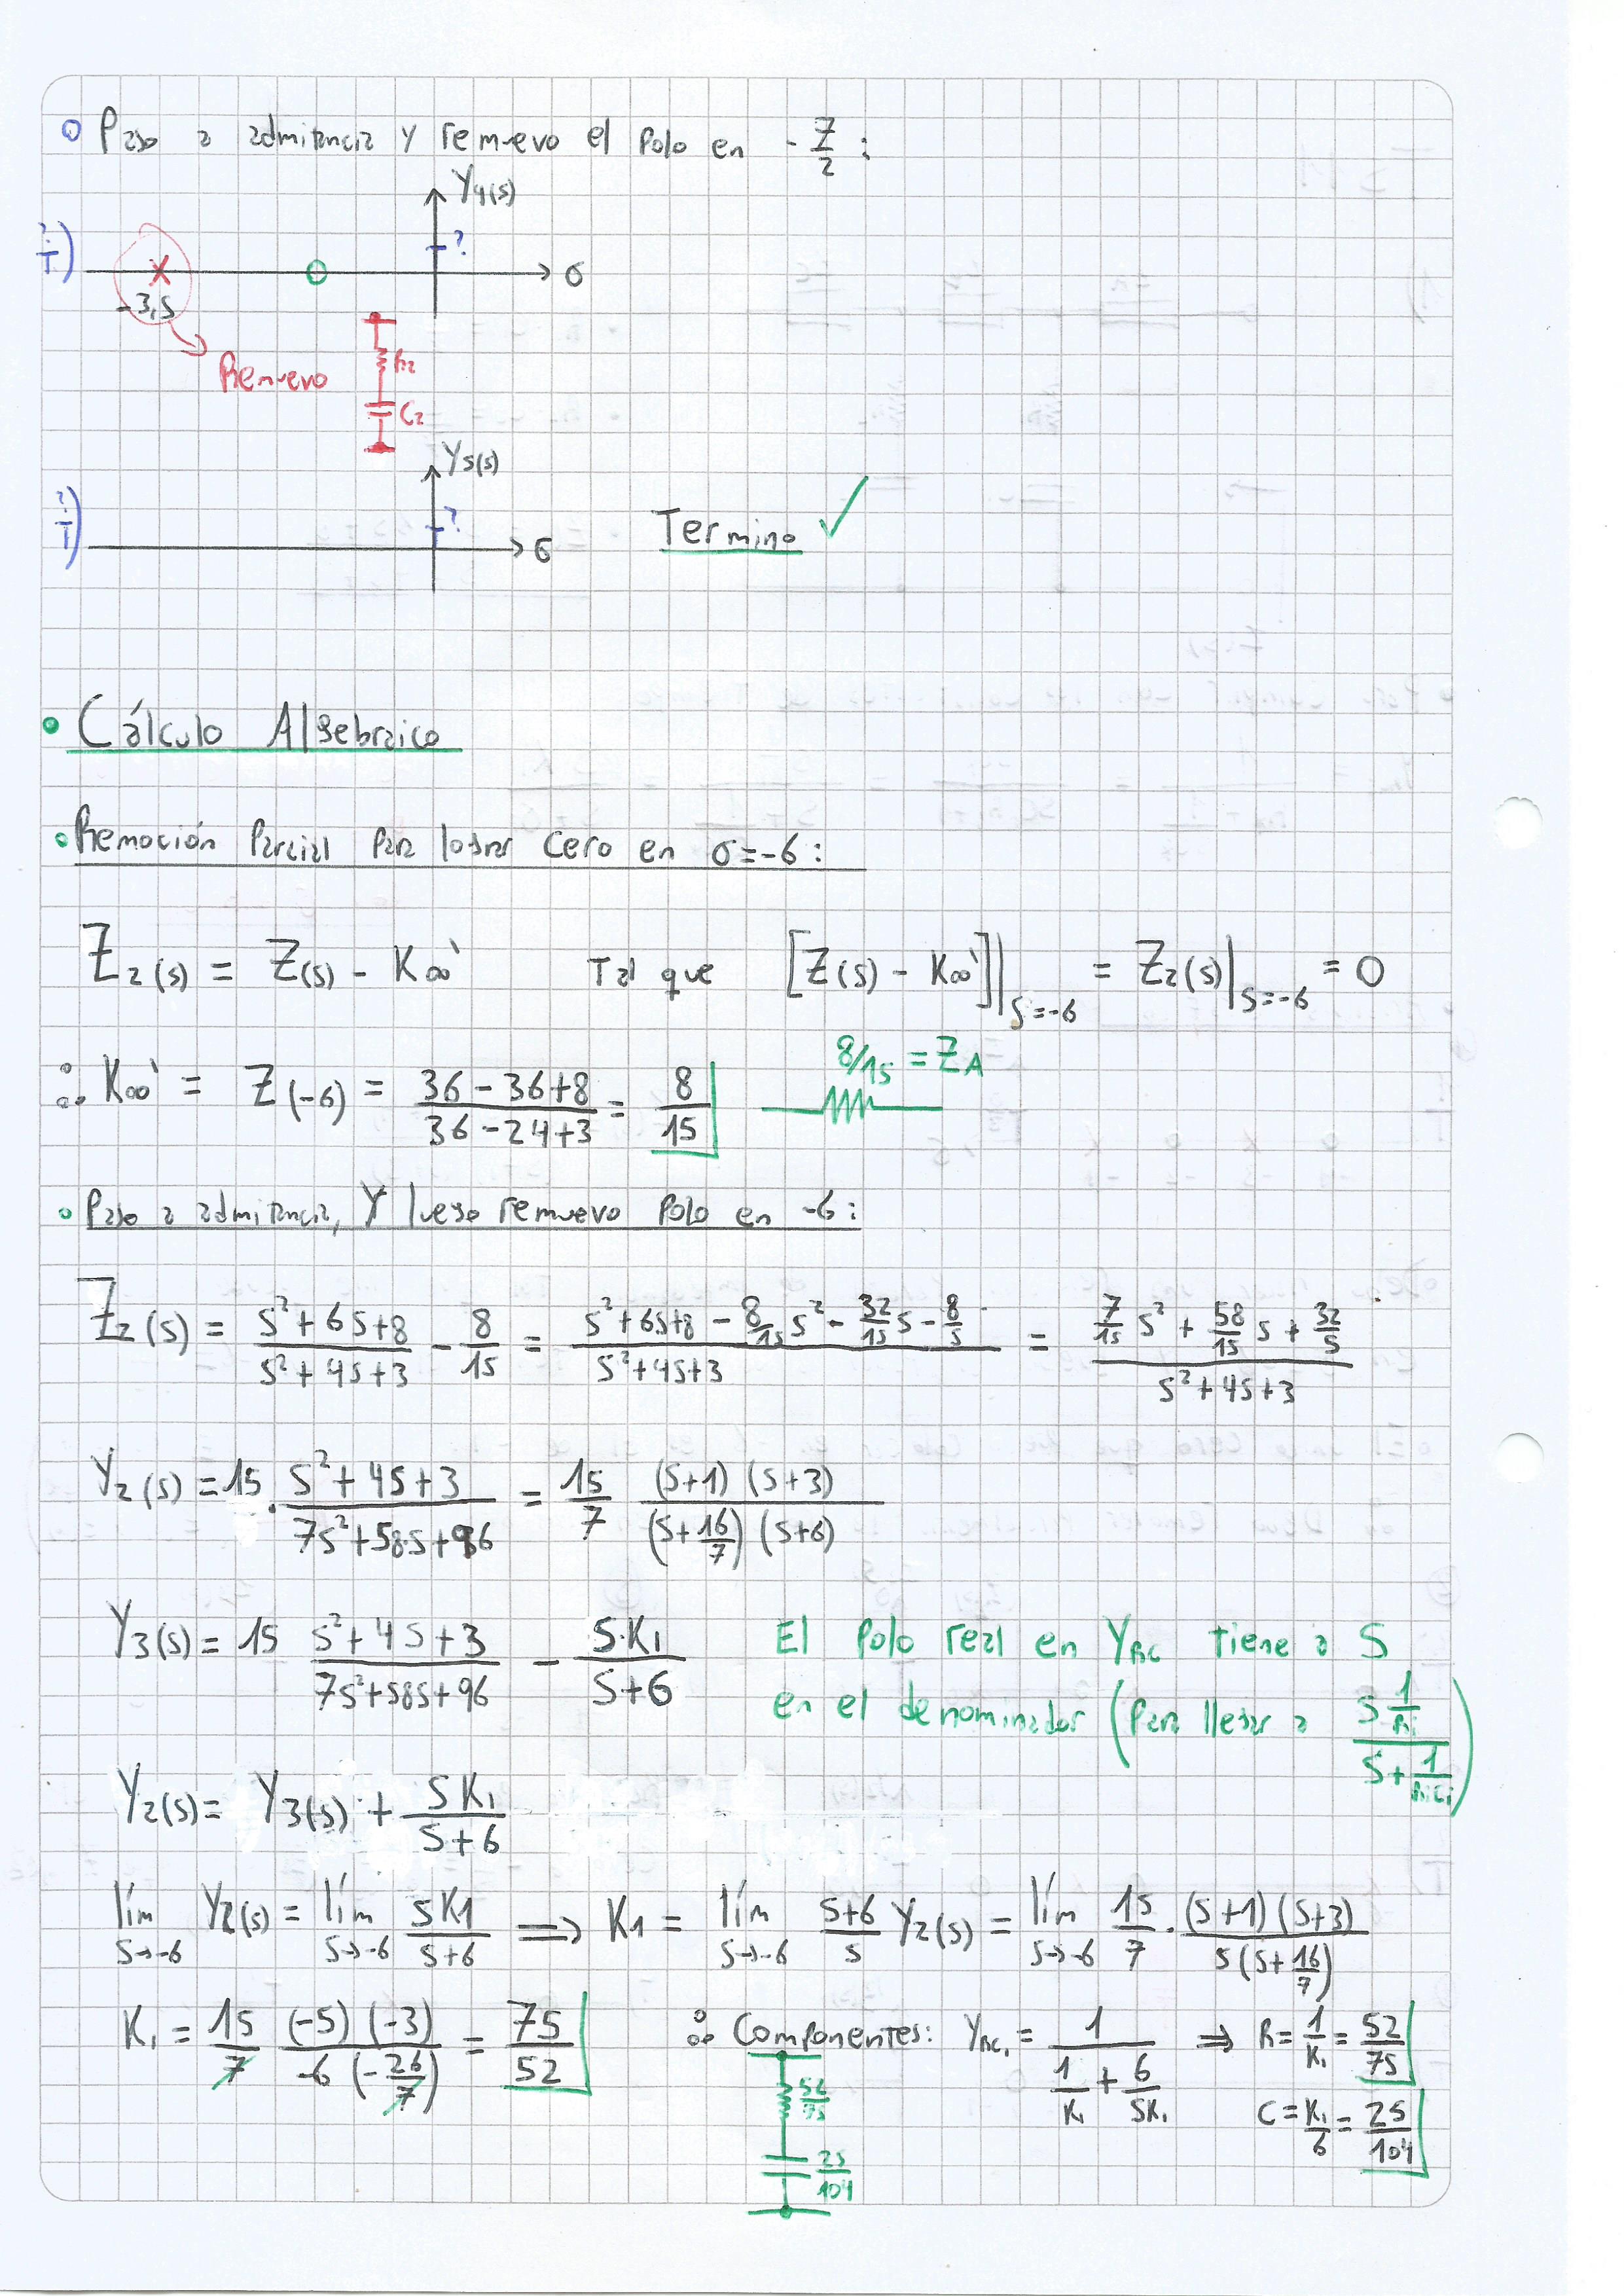 Paso a admitancia y remuevo el polo en -7/2 :
Y4(s)
?
σ
-3,5
Remuevo
R2
C2
Y5(s)
?
σ
Termino ✓
• Cálculo Algebraico
• Remoción Parcial para lograr cero en σ=-6 :
Z2(s) = Z(s) - K∞' Tal que [Z(s) - K∞']|s=-6 = Z2(s)|s=-6 = 0
∴ K∞' = Z(-6) = (36 - 36 + 8)/(36 - 24 + 3) = 8/15
8/15 = ZA
• Paso a admitancia, y luego remuevo polo en -6 :
Z2(s) = (s²+6s+8)/(s²+4s+3) - 8/15 = (s²+6s+8 - 8/15 s² - 32/15 s - 8/5)/(s²+4s+3) = (7/15 s² + 58/15 s + 32/5)/(s²+4s+3)
Y2(s) = 15 . (s²+4s+3)/(7s²+58s+96) = 15/7 (s+1)(s+3)/((s+16/7)(s+6))
Y3(s) = 15 (s²+4s+3)/(7s²+58s+96) - s.K1/(s+6)
El polo real en YRC tiene a s
en el denominador (para llegar a (s 1/Ri)/(s + 1/RiCi))
Y2(s) = Y3(s) + sK1/(s+6)
lím s→-6 Y2(s) = lím s→-6 sK1/(s+6) ⟹ K1 = lím s→-6 (s+6)/s Y2(s) = lím s→-6 15/7 . (s+1)(s+3)/(s(s+16/7))
K1 = 15/7 (-5)(-3)/(-6(-26/7)) = 75/52
∴ Componentes: YRC1 = 1/(1/K1 + 6/(sK1)) ⟹ R = 1/K1 = 52/75
C = K1/6 = 25/104
52/75
25/104